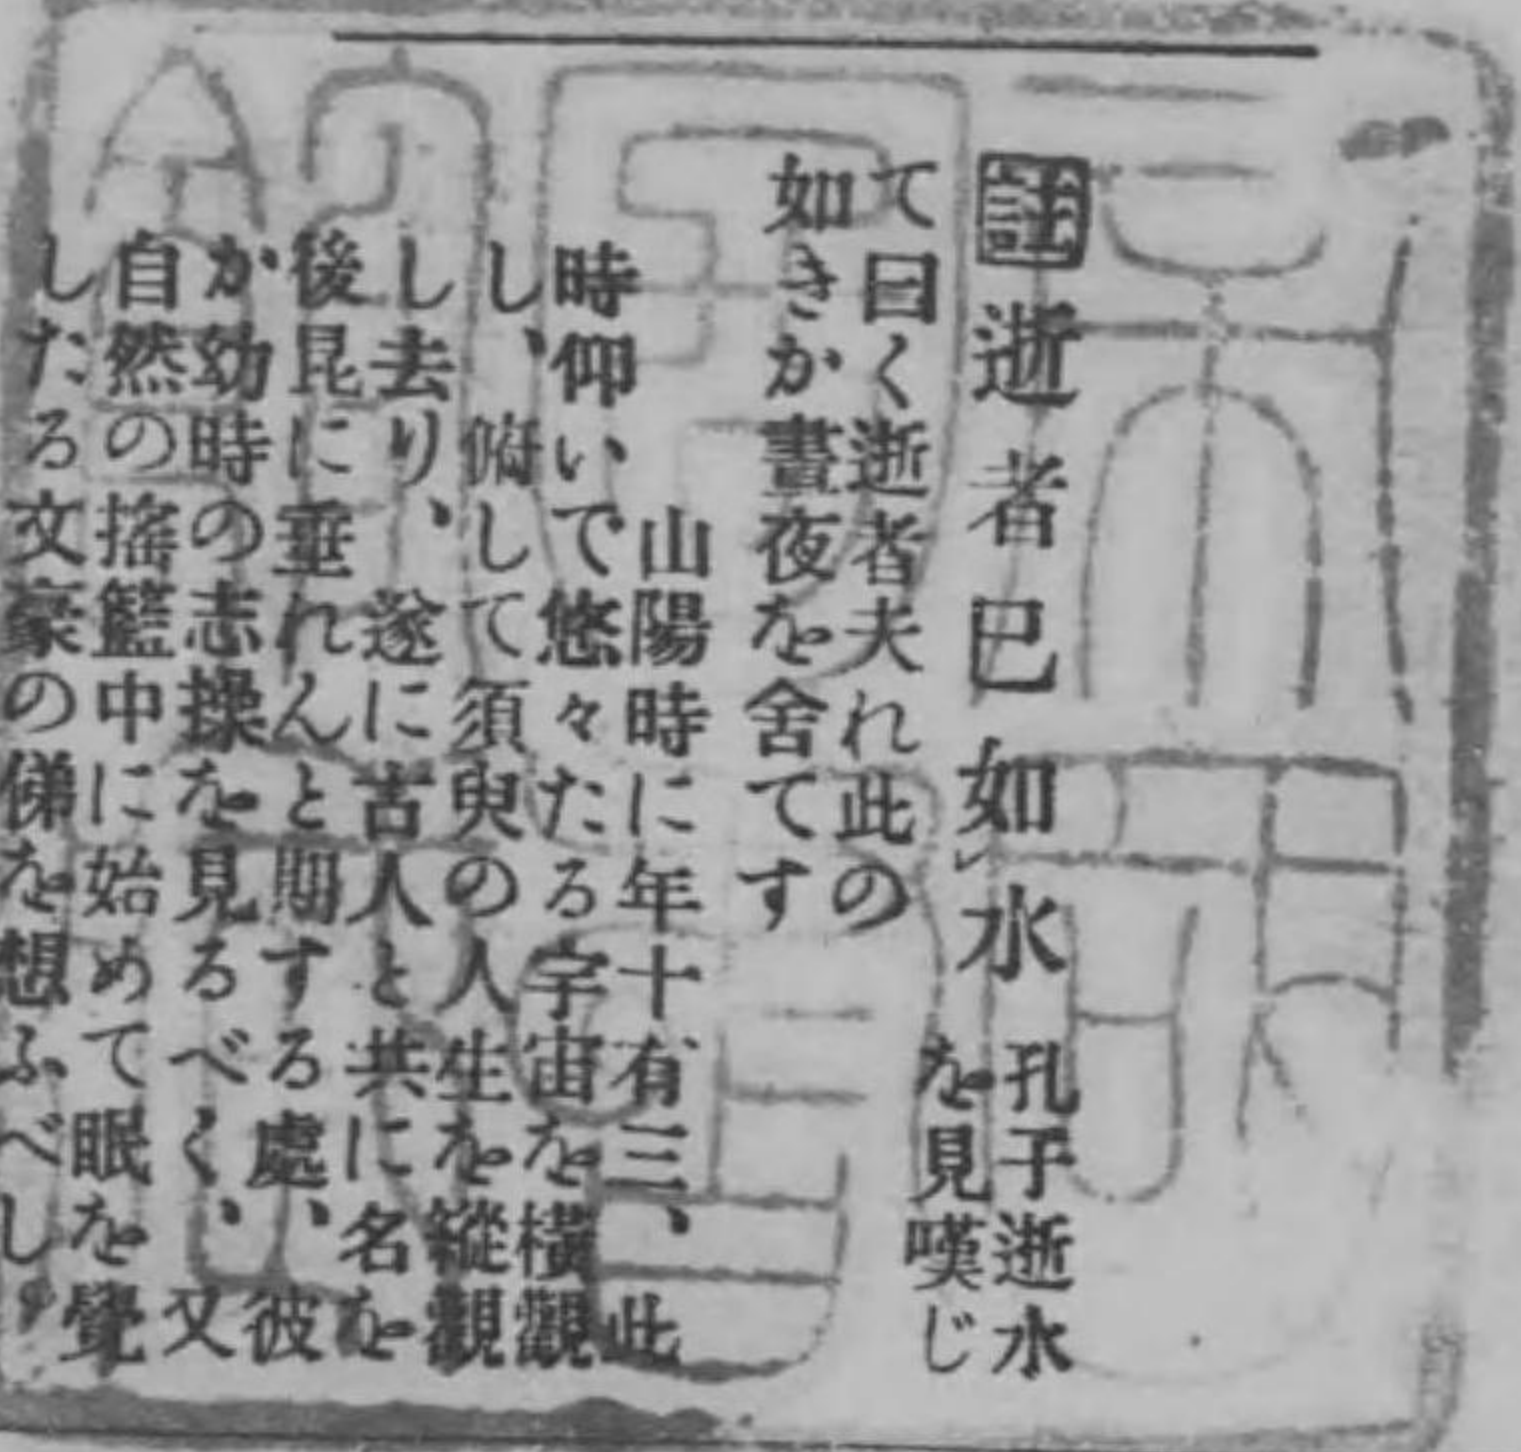 註逝者已如レ水 孔子逝水
を見嘆じ
て曰く逝者夫れ此の
如きか晝夜を舍てす
山陽時に年十有三、此
時仰いで悠々たる宇宙を橫觀
し、俯して須臾の人生を縱觀
し去り、遂に古人と共に名を
後昆に垂れんと期する處、彼
か幼時の志操を見るべく、又
自然の搖籃中に始めて眠を覺
したる文豪の俤を想ふべし、